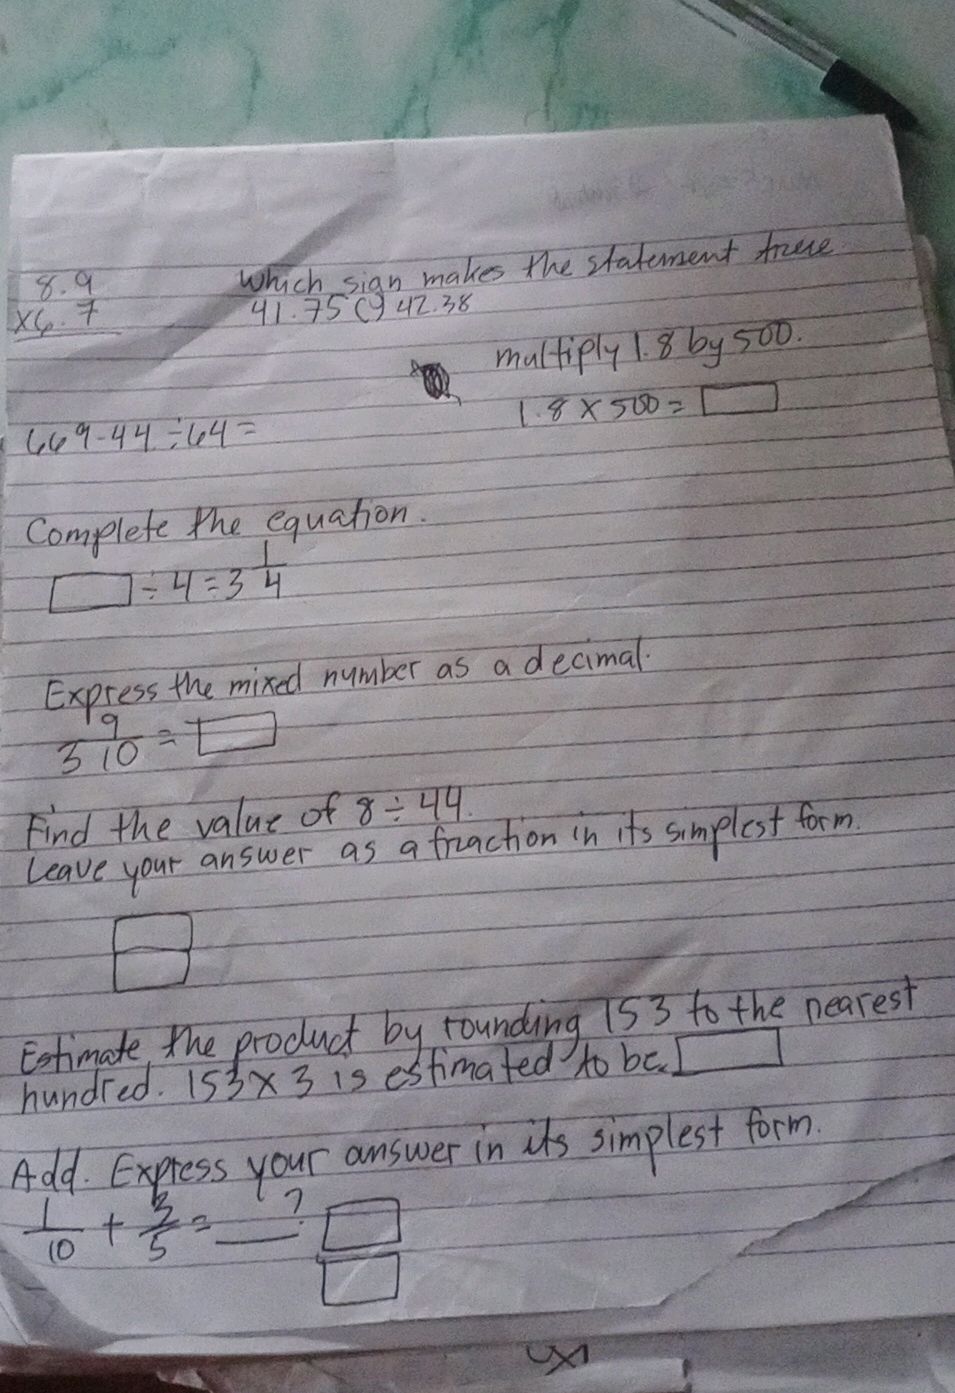 8.9
x6.7
Which sign makes the statement true.
41.75 ( ) 42.38
multiply 1.8 by 500.
1.8 x 500 =
669-44÷64=
Complete the equation.
÷ 4 = 3 1/4
Express the mixed number as a decimal.
3 9/10 =
Find the value of 8 ÷ 44.
Leave your answer as a fraction in its simplest form.
Estimate the product by rounding 153 to the nearest
hundred. 153 x 3 is estimated to be
Add. Express your answer in its simplest form.
1/10 + 3/5 = ___?